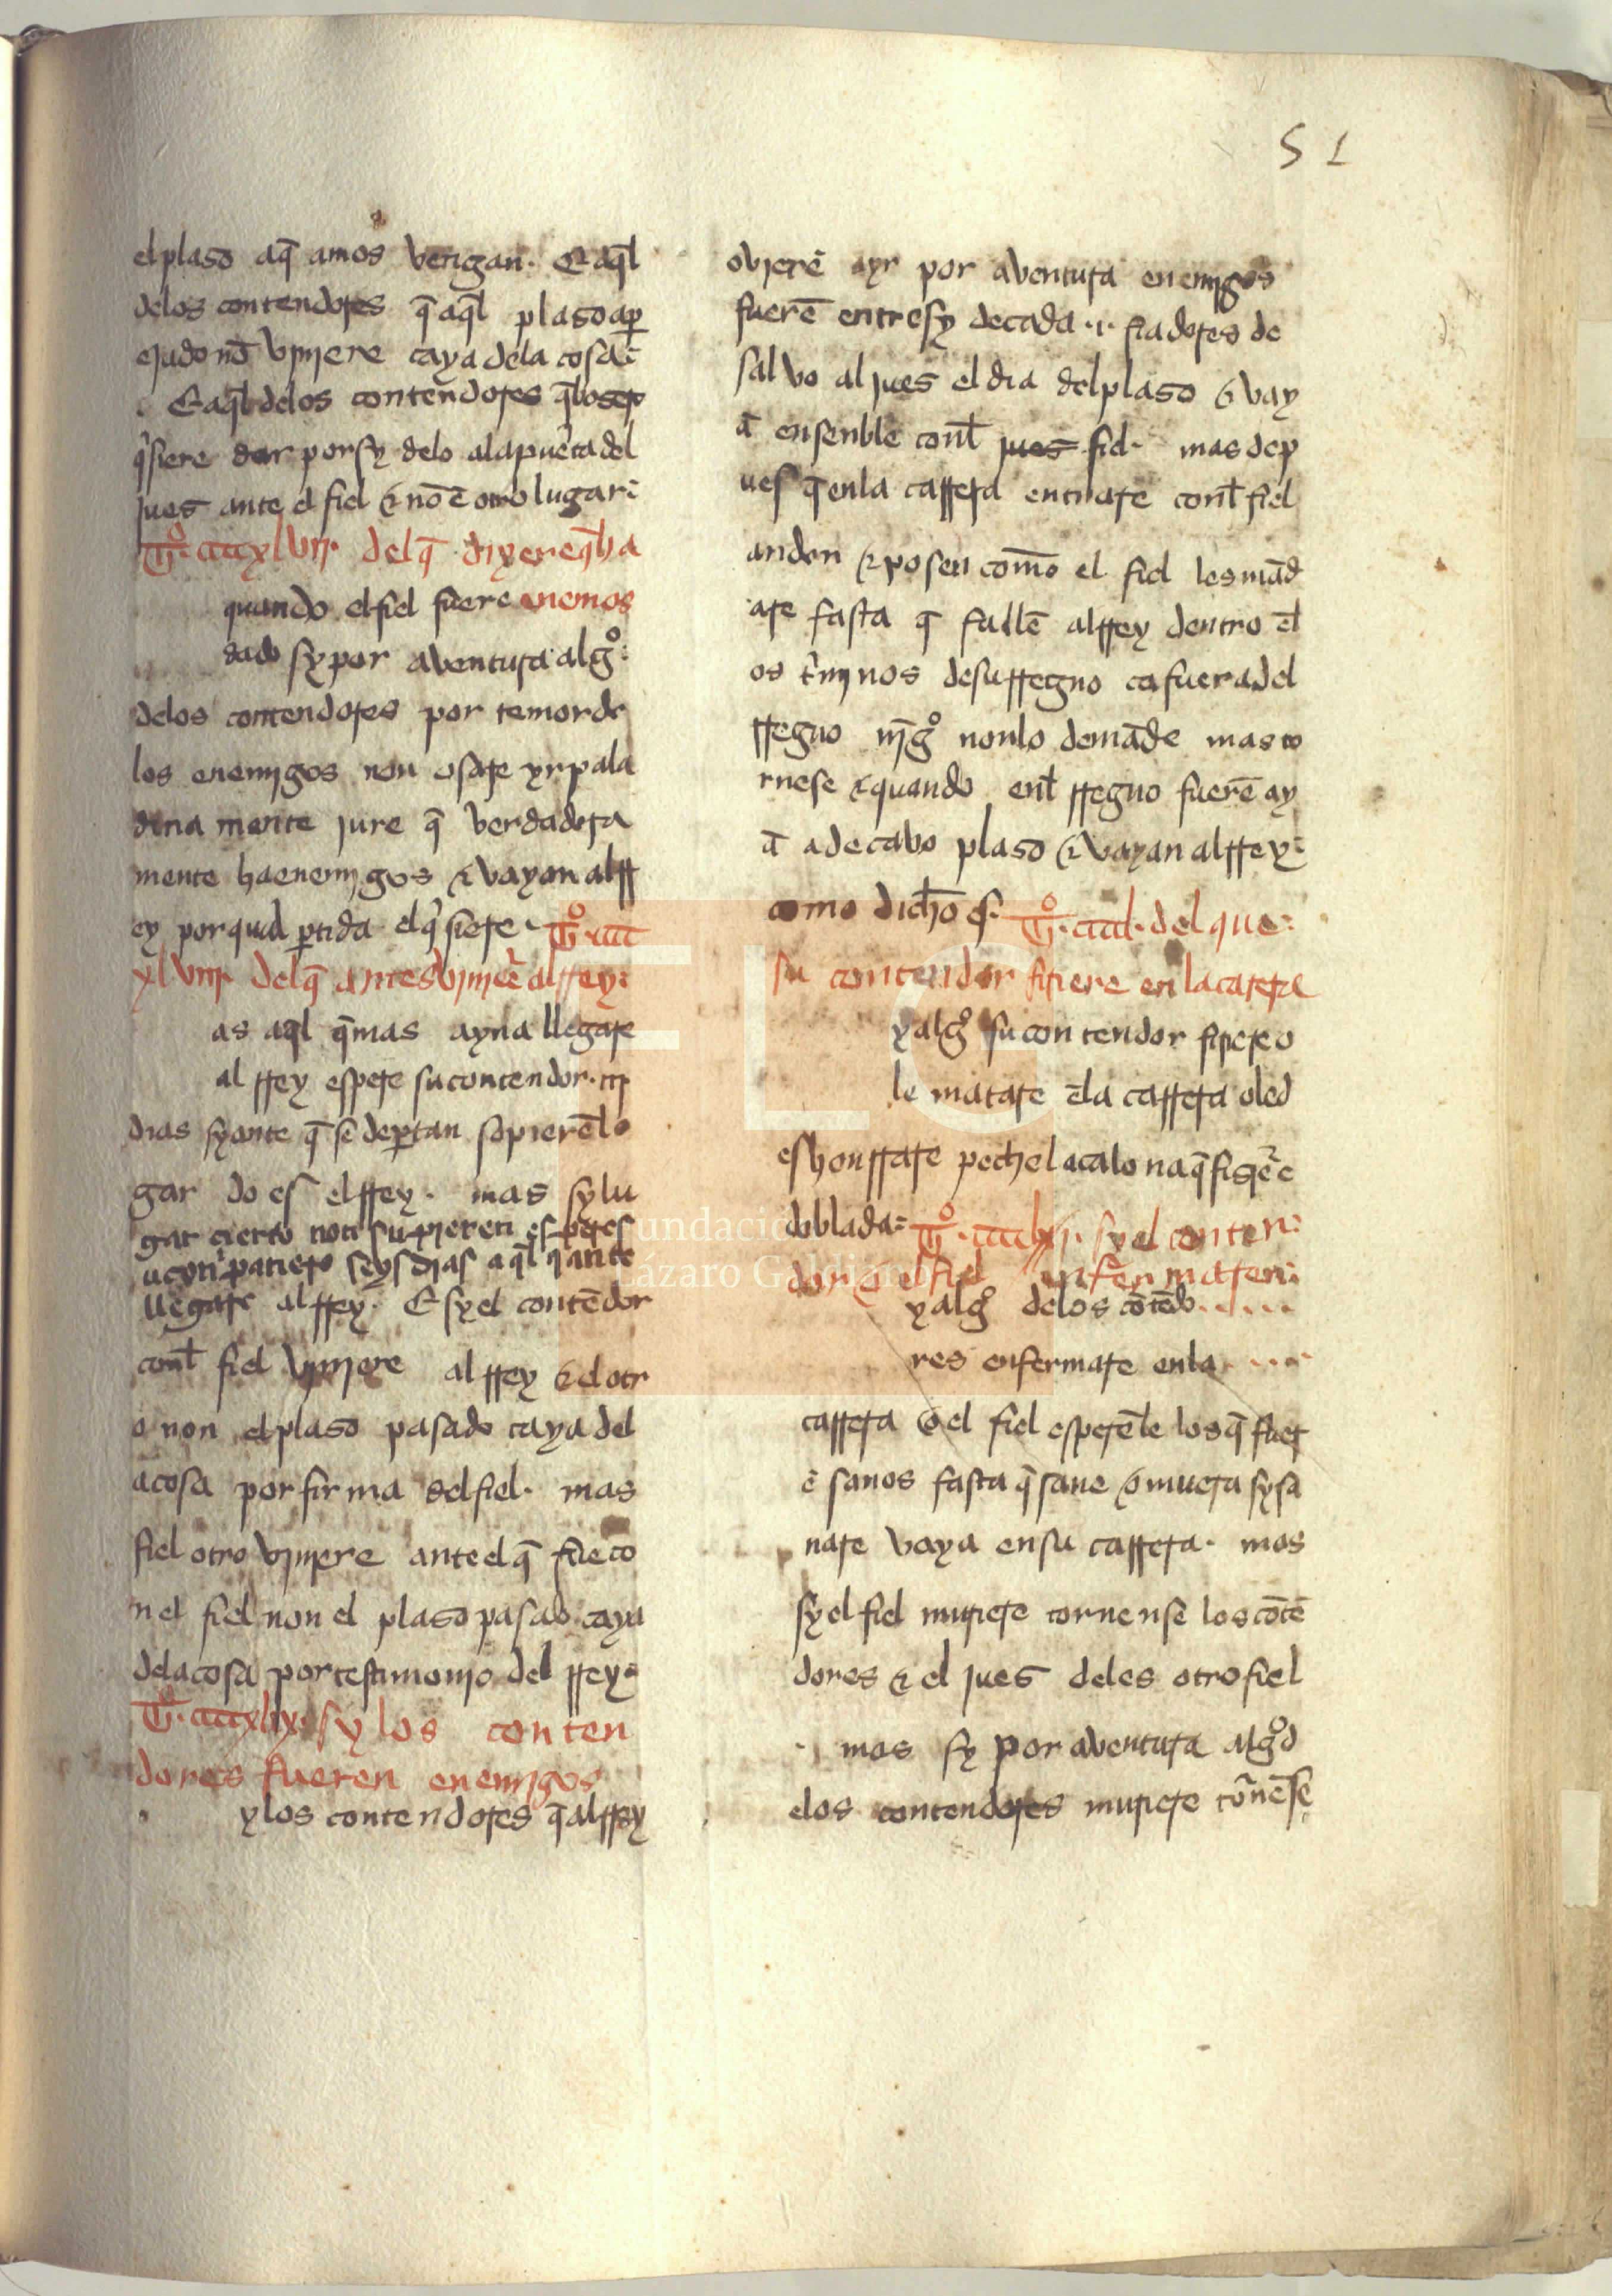 51
el plaso aq̄ amos vengan. E aq̄l
delos contendores q̄ aq̄l plaso ap̱
ejado nō viniere caya dela cosa:
E aq̄l delos contendores
q̉siere dar por sy delo ala puerta del
jues ante el fiel & nō ē otro lugar:
Tº. cccxlvij. del q̄ dixere q̄ ha
quando el fiel fuere enemos
dado sy por aventura algº:
delos contendores por temor de
los enemigos non osare yr pala
dina mente jure q̄ verdadera
mente ha enemigos & vayan al rr
ey por qual ꝑtida el q̉siere. Tº. ccc
xlviij. del q̄ antes viniere al rrey:
as aq̄l q̄ mas ayna llegare
al rrey espere su contendor. iij
dias sy ante q̄ se deꝑtan sopierē lo
gar do es el rrey. mas sy lu
gar cierto non supieren esperes
seys dias aq̄l q̄ ante
llegare al rrey. E sy el contēdor
conl fiel viniere al rrey & el otr
o non el plaso pasado caya del
a cosa por firma del fiel. mas
fiel otro viniere ante el q̄ fue co
n el fiel non el plaso pasado caya
dela cosa por testimonio del rrey:
Tº. cccxlix. sy los conten
dores fueren enemigos
y los contendores q̄ al rrey
ovierē a yr por aventura enemigos
fuerē entre sy de cada .i. fiadores de
salvo al jues el dia del plaso & vay
ā ensenble conl jues fiel. mas dep
ues q̄ enla carrera entrare conl fiel
anden & posen como el fiel les mād
are fasta q̄ fallē al rrey dentro ēl
os t̉minos de su rregno ca fuera del
rregno nĩgº non lo demāde mas to
rnese & quando enl rregno fuerē ay
ā a de cabo plaso & vayan al rrey:
como dicho es. Tº. cccl. del que:
su contendor firiere en la carera
y algº su contendor firiere o
le matare ēla carrera o le d
eshonrrare peche la calonna q̄ fisiere
doblada: Tº. cccli. sy el conten:
dor o el fiel enfermaren:
y algº delos cōtēdo.....
res enfermare enla....
carrera o el fiel esperēle los q̄ fuer
ē sanos fasta q̄ sane o muera sy sa
nare vaya en su carrera. mas
sy el fiel muriere tornense los cōtē
dores & el jues deles otro fiel
mas sy por aventura algº d
elos contendores muriere tōnēse